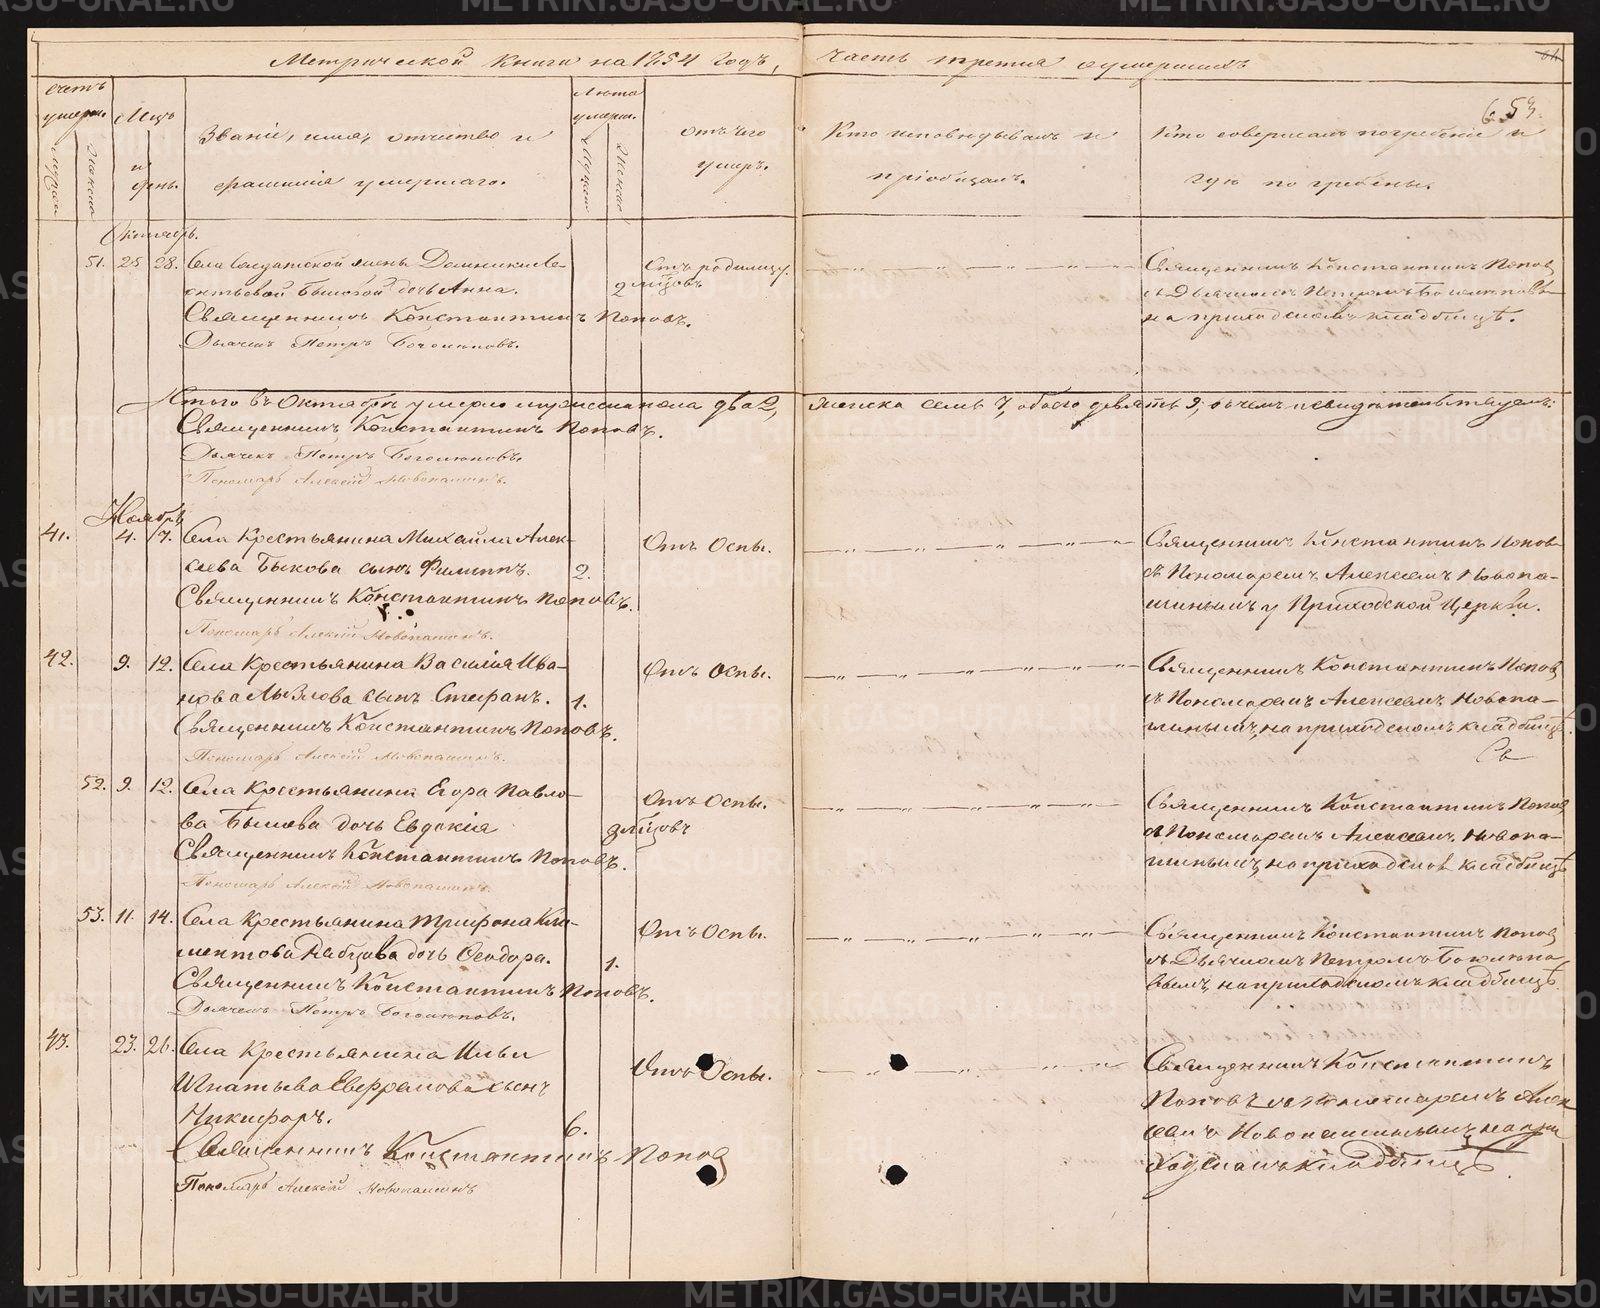 Метрической книги на 1854 годъ, часть третья о умершихъ
653.
Счетъ умерш.
Мужеска
Женска
Мцъ и день.
Званіе, имя, отчество и фамилія умершаго.
Лета умерш.
Мужеск
Женска
отъ чего умеръ.
Кто исповѣдывалъ и пріобщалъ.
Кто совершалъ погребеніе и гдѣ погребены.
Октябрь.
51. 25 28. Села Солдатской жены Домники
Быковой дочь Анна. 2 мѣсцовъ
Отъ родимцу.
Священникъ Константинъ Поповъ.
Дьячекъ Петръ Боголюповъ.
Священникъ Константинъ Поповъ
съ Дьячкомъ Петромъ Боголюповы
на приходскомъ кладбищѣ.
Итого въ Октябрѣ умерло мужеска пола два 2, женска семь 7, обоего девять 9; о чемъ и свидѣтельствуемъ:
Священникъ Константинъ Поповъ.
Дьячекъ Петръ Боголюповъ.
Пономарь Алексій Новопашинъ.
Ноябрь
41. 4. 7. Села Крестьянина Михаила Алек-
сѣева Быкова сынъ Филиппъ. 2.
Отъ Оспы.
Священникъ Константинъ Поповъ.
Пономарь Алексій Новопашинъ.
Священникъ Константинъ Попов
съ Пономаремъ Алексеемъ Новопа-
шинымъ у Приходской Церкви.
42. 9. 12. Села Крестьянина Василія Ива-
нова сынъ Стефанъ. 1.
Отъ Оспы.
Священникъ Константинъ Поповъ.
Пономарь Алексій Новопашинъ.
Священникъ Константинъ Попов
съ Пономаремъ Алексеемъ Новопа-
шинымъ, на приходскомъ кладбищѣ.
Св
52. 9. 12. Села Крестьянина Егора Павло-
ва Быкова дочь Евдокія 3 мѣсцовъ
Отъ Оспы.
Священникъ Константинъ Поповъ.
Пономарь Алексій Новопашинъ.
Священникъ Константинъ Попов
съ Пономаремъ Алексеемъ Новопа-
шинымъ, на приходском кладбищѣ
53. 11. 14. Села Крестьянина Трифона Кли-
ментова дочь Ѳеодора. 1.
Отъ Оспы.
Священникъ Константинъ Поповъ.
Дьячекъ Петръ Боголюповъ.
Священникъ Константинъ Попов
съ Дьячкомъ Петромъ Боголюпо
вымъ, на приходскомъ кладбищѣ
43. 23. 26. Села Крестьянина Ильи
Игнатьева сынъ
Никифоръ. 6.
Отъ Оспы.
Священникъ Константинъ Попов
Пономарь Алексій Новопашинъ
Священникъ Константинъ
Поповъ съ Пономаремъ Алек
сеемъ Новопашинымъ, на при
ходскомъ кладбищѣ.
METRIKI.GASO-URAL.RU